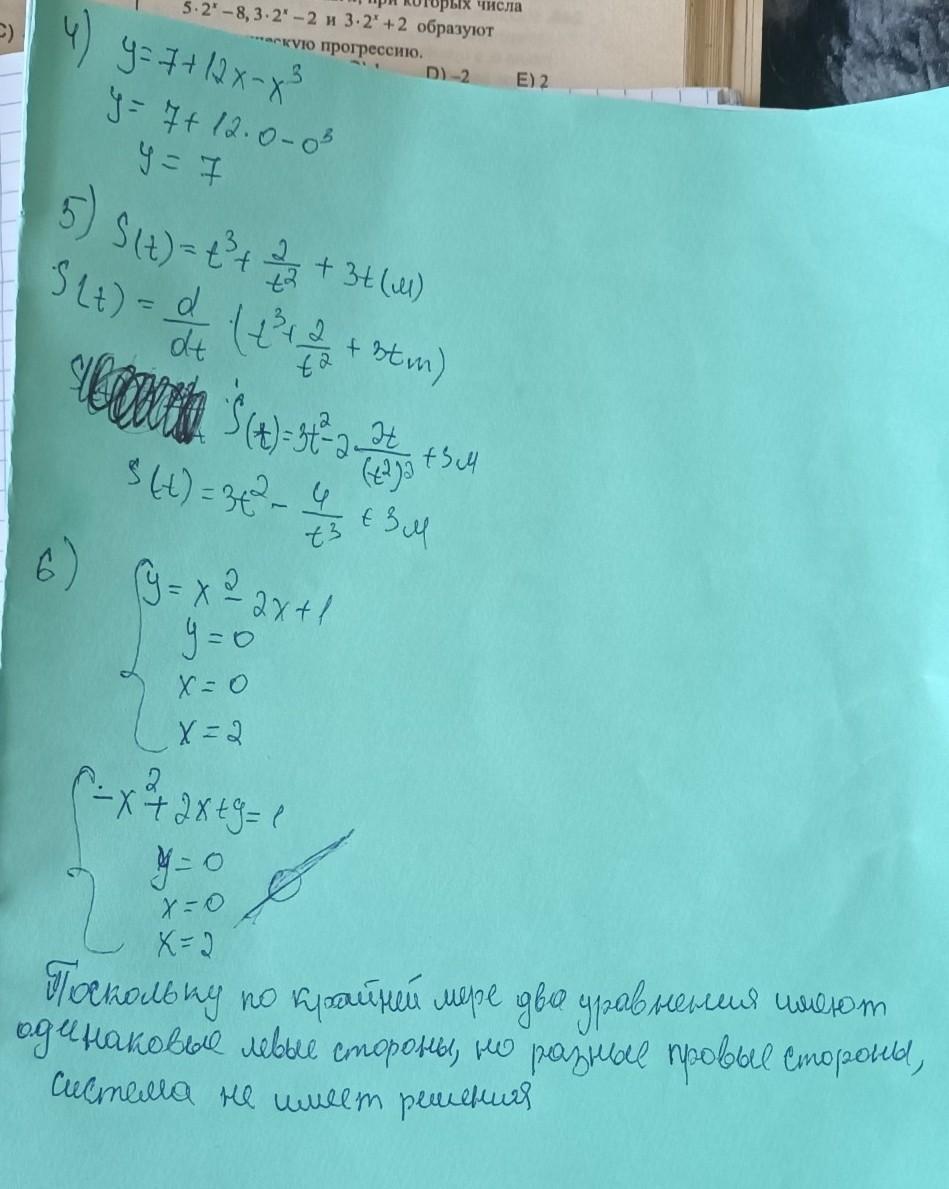 при которых числа
5·2ˣ−8, 3·2ˣ−2 и 3·2ˣ+2 образуют
прогрессию.
D) −2 E) 2
C)
4) y=7+12x−x³
y= 7+12·0−0³
y= 7
5) S(t)=t³+2/t²+3t(м)
S(t)=d/dt·(t³+2/t²+3tm)
Ṡ(t)=3t²−2·2t/(t²)²+3м
S(t)=3t²−4/t³+3м
6)
{y=x²−2x+1
y=0
x=0
x=2
{−x²+2x+y=1
y=0
x=0
x=2
Поскольку по крайней мере два уравнения имеют
одинаковые левые стороны, но разные правые стороны,
система не имеет решения